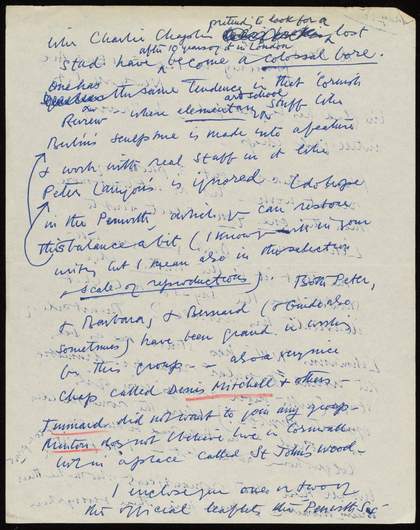 like Charlie Chaplin pretend to look for a lost
Stud have after 10 years of it in London become a colossal bore.
One has the same tendency in that Cornish
Review – where elementary art school stuff like
Berlin's sculpture is made into a feature
& work with real stuff in it like
Peter Lanyon's is ignored – I do hope
in the Penwith, which you can restore
this balance a bit (I know in your
writing but I mean also in the selection
& scale of reproductions). Both Peter,
& Barbara, & Bernard (& Guido also
sometimes) have been grand in working
for this group – also a very nice
chap called Denis Mitchell & others –
Tunnard did not want to join any group –
Minton does not I believe live in Cornwall
but in a place called St John's Wood –
I enclose you one or two of
the official leaflets the Penwith Soc